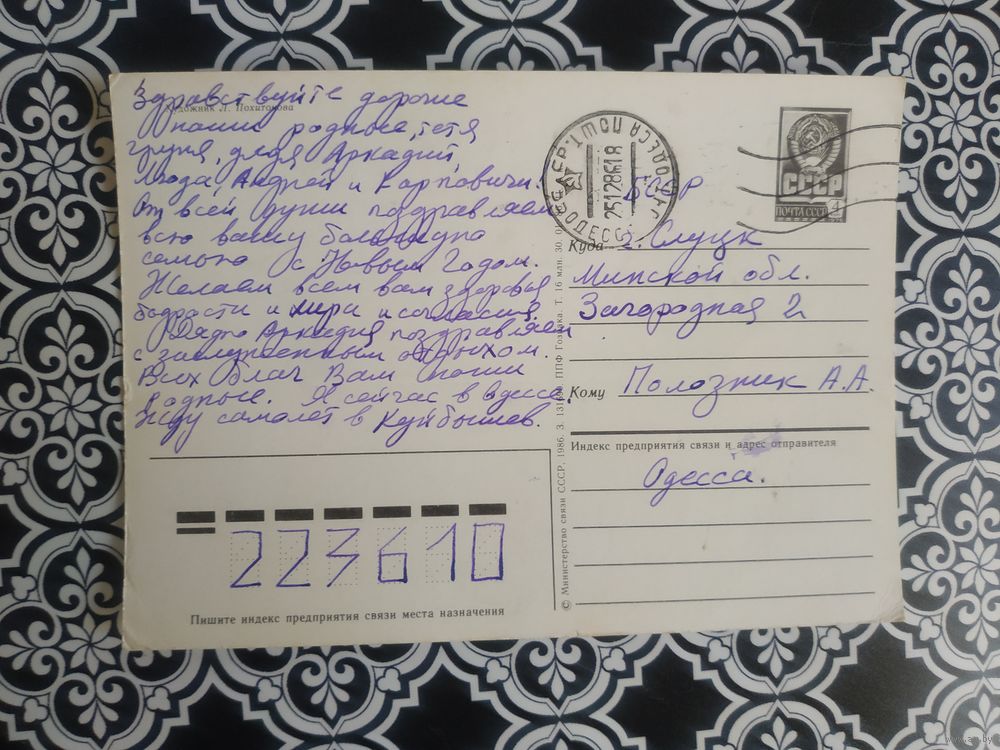 Здравствуйте дорогие
Художник Л. Похитонова
наши родные, тетя
груня, дядя Аркадий,
Люда, Андрей и Карповичи.
От всей души поздравляем
всю вашу большую
семью с Новым Годом.
Желаем всем вам здоровья
бодрости и мира и согласия.
Дядю Аркадия поздравляем
с заслуженным отдыхом.
Всех благ Вам наши
родные. Я сейчас в Одессе.
Жду самолет в Куйбышев.
223610
Пишите индекс предприятия связи места назначения
© Министерство связи СССР, 1986. З. ППФ Гознака. Т. 16 млн.
ОДЕССА ПОЧТАМТ
25128618
СССР
ПОЧТА СССР
4
БССР
Куда г. Слуцк
Минской обл.
Загородная 2
Кому Полозник А.А.
Индекс предприятия связи и адрес отправителя
г
Одесса.